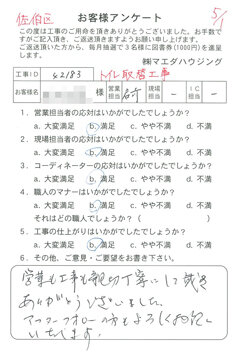 佐伯区
5/1
お客様アンケート
この度は工事のご用命を頂きありがとうございました。お手数で
すがご記入頂き、ご返送頂きますようお願い申し上げます。
ご返送頂いた方から、毎月抽選で3名様に図書券(1000円)を進呈
します。
㈱マエダハウジング
工事ID 42183 トイレ取替工事
お客様名 様 営業担当 現場担当 － IC担当 －
1.営業担当者の応対はいかがでしたでしょうか?
a.大変満足 b.満足 c.やや不満 d.不満
2.現場担当者の応対はいかがでしたでしょうか?
a.大変満足 b.満足 c.やや不満 d.不満
3.コーディネーターの応対はいかがでしたでしょうか?
a.大変満足 b.満足 c.やや不満 d.不満
4.職人のマナーはいかがでしたでしょうか?
a.大変満足 b.満足 c.やや不満 d.不満
それはどの職人でしょうか?( )
5.工事の仕上がりはいかがでしたでしょうか?
a.大変満足 b.満足 c.やや不満 d.不満
6.その他、ご意見・ご要望をお書き下さい。
営業も工事も親切丁寧にして頂き
ありがとうございました。
アフターフォローの方もよろしくお願い
いたします。